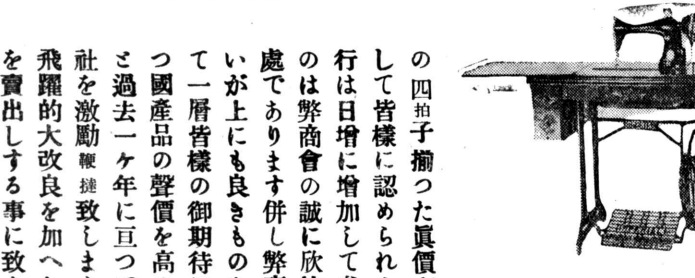 の四拍子揃つた眞價
して皆樣に認められ
行は日增に增加して
のは弊商會の誠に欣
處であります併し弊
いが上にも良きもの
て一層皆樣の御期待
つ國產品の聲價を高
と過去一ケ年に亘つ
社を激勵鞭撻致しま
飛躍的大改良を加へ
を賣出しする事に致